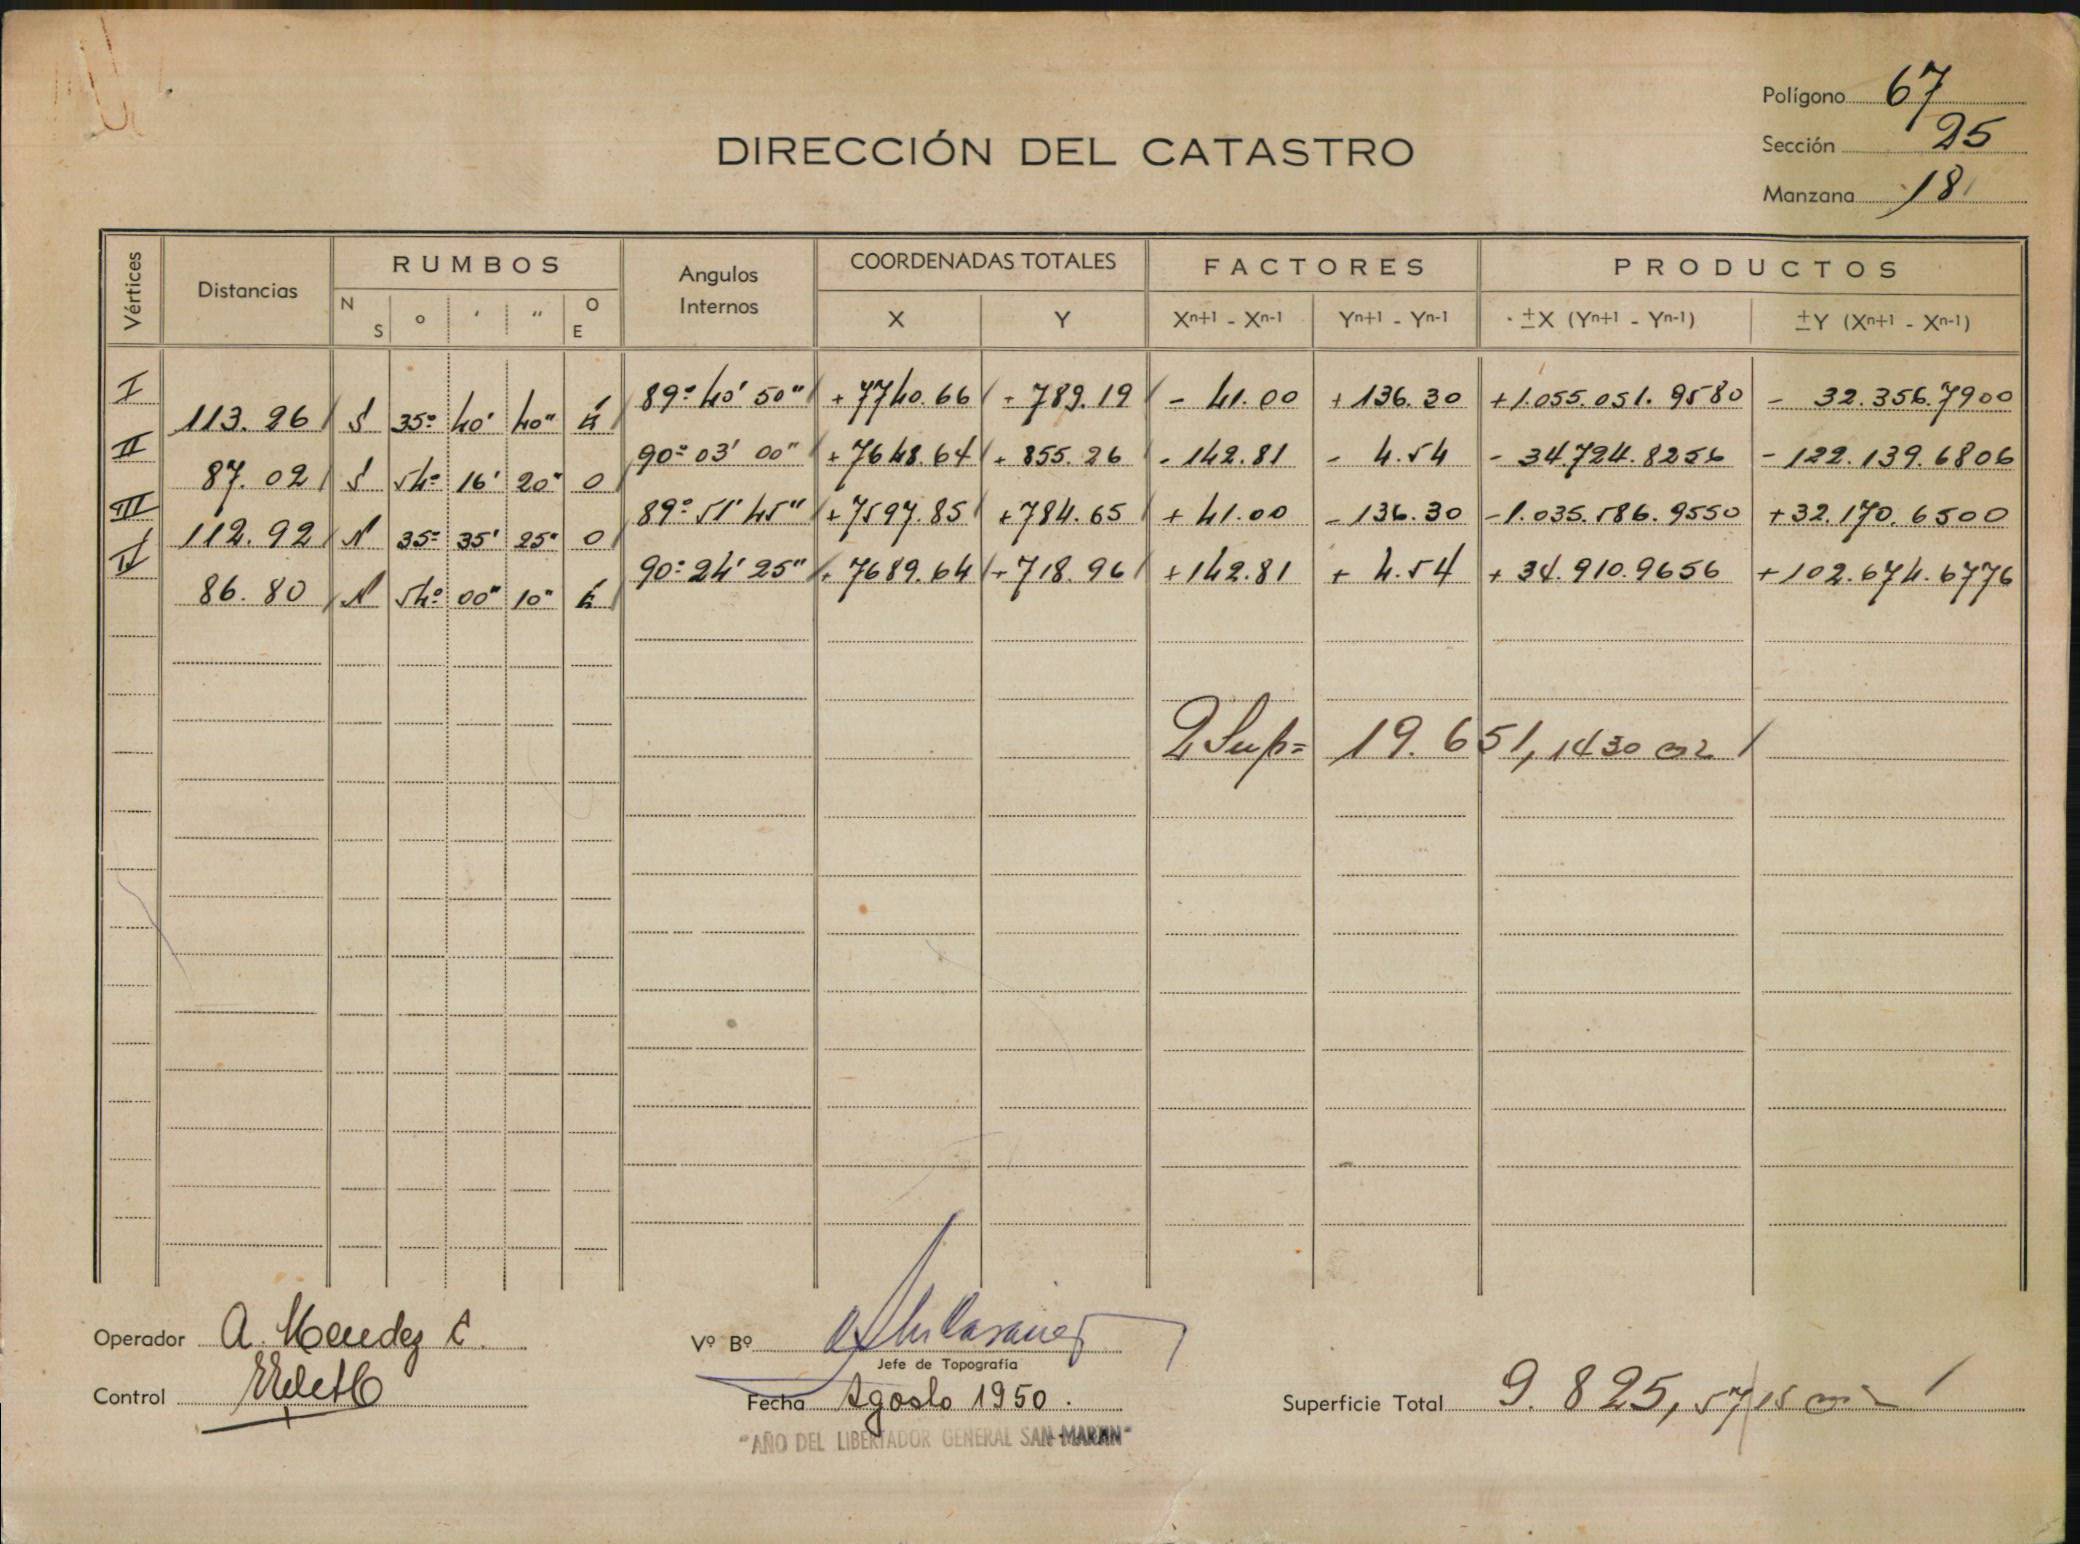 Polígono 67
DIRECCIÓN DEL CATASTRO
Sección 25
Manzana 18
Vértices Distancias RUMBOS Angulos Internos COORDENADAS TOTALES FACTORES PRODUCTOS
N S o ' " O E X Y Xn+1 - Xn-1 Yn+1 - Yn-1 ±X (Yn+1 - Yn-1) ±Y (Xn+1 - Xn-1)
I 89º 40' 50" +7740.66 + 789.19 - 41.00 +136.30 +1.055.051.9580 - 32.356.7900
113.26 S 35º 40' 40" E
II 90º 03' 00" +7648.64 + 855.26 -142.81 - 4.54 - 34.724.8256 -122.139.6806
87.02 S 54º 16' 20" O
III 89º 51' 45" +7597.85 +784.65 + 41.00 -136.30 -1.035.586.9550 +32.170.6500
112.92 N 35º 35' 25" O
IV 90º 24' 25" +7689.64 +718.96 +142.81 + 4.54 + 34.910.9656 +102.674.6776
86.80 N 54º 00" 10" E
2 Sup= 19.651,1430 m2
Operador A. Mendez C.
Vº Bº
Jefe de Topografía
Control
Fecha Agosto 1950.
Superficie Total 9.825,5715 m2
"AÑO DEL LIBERTADOR GENERAL SAN MARTIN"